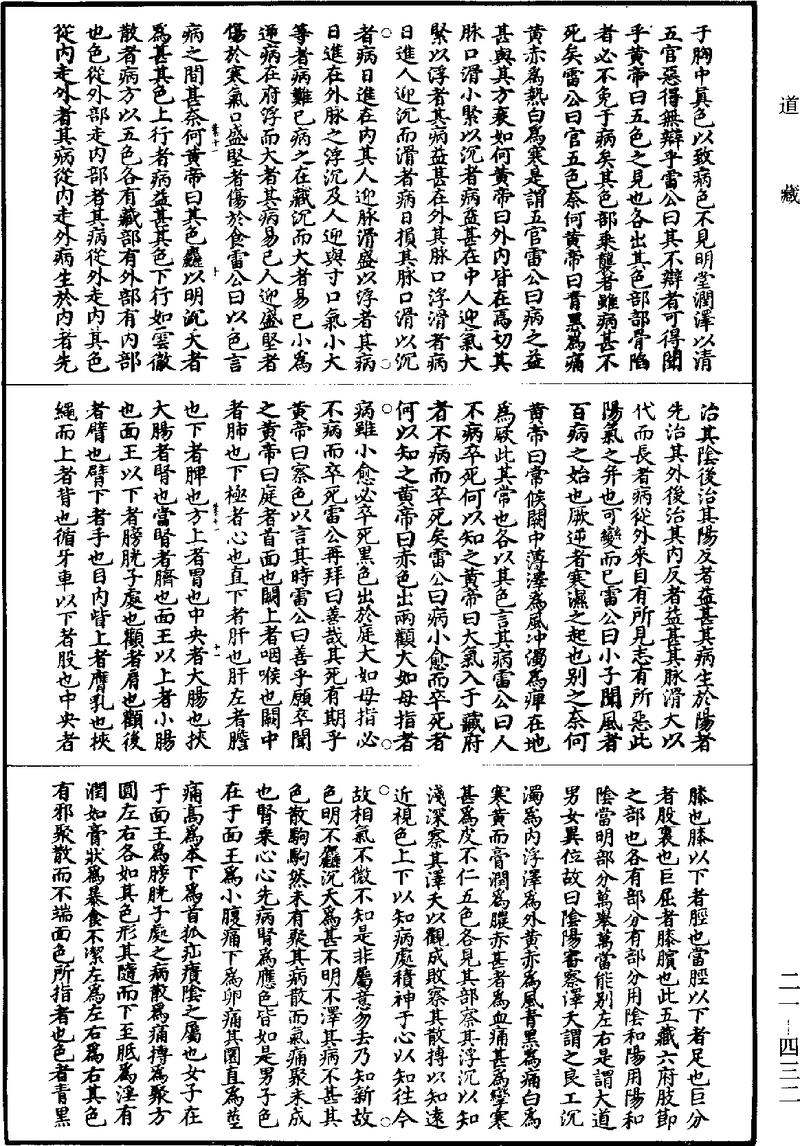 道藏
于胸中真色以致病色不見明堂潤澤以清
五官惡得無辯乎雷公曰其不辯者可得聞
乎黄帝曰五色之見也各出其色部部骨陷
者必不免于病矣其色部乘襲者雖病甚不
死矣雷公曰官五色奈何黄帝曰青黑為痛
黄赤為熱白為寒是謂五官雷公曰病之益
甚與其方衰如何黄帝曰外内皆在焉切其
脉口滑小緊以沉者病益甚在中人迎氣大
緊以浮者其病益甚在外其脉口浮滑者病
日進人迎沉而滑者病日損其脉口滑以沉
者病日進在内其人迎脉滑盛以浮者其病
日進在外脉之浮沉及人迎與寸口氣小大
等者病難已病之在藏沉而大者易已小為
逆病在府浮而大者其病易已人迎盛堅者
傷於寒氣口盛堅者傷於食雷公曰以色言
病之間甚奈何黄帝曰其色麤以明沉夭者
為甚其色上行者病益甚其色下行如雲徹
散者病方以五色各有藏部有外部有内部
也色從外部走内部者其病從外走内其色
從内走外者其病從内走外病生於内者先
治其陰後治其陽反者益甚其病生於陽者
先治其外後治其内反者益甚其脉滑大以
代而長者病從外來目有所見志有所惡此
陽氣之并也可變而已雷公曰小子聞風者
百病之始也厥逆者寒濕之起也别之奈何
黄帝曰常候闕中薄澤為風冲濁為痺在地
為厥此其常也各以其色言其病雷公曰人
不病卒死何以知之黄帝曰大氣入于藏府
者不病而卒死矣雷公曰病小愈而卒死者
何以知之黄帝曰赤色出兩顴大如母指者
病雖小愈必卒死黑色出於庭大如母指必
不病而卒死雷公再拜曰善哉其死有期乎
黄帝曰察色以言其時雷公曰善乎願卒聞
之黄帝曰庭者首面也闕上者咽喉也闕中
者肺也下極者心也直下者肝也肝左者膽
也下者脾也方上者胃也中央者大腸也挾
大腸者腎也當腎者臍也面王以上者小腸
也面王以下者膀胱子處也顴者肩也顴後
者臂也臂下者手也目内眥上者膺乳也挾
繩而上者背也循牙車以下者股也中央者
膝也膝以下者脛也當脛以下者足也巨分
者股裏也巨屈者膝臏也此五藏六府肢節
之部也各有部分有部分用陰和陽用陽和
陰當明部分萬舉萬當能别左右是謂大道
男女異位故曰陰陽審察澤夭謂之良工沉
濁為内浮澤為外黄赤為風青黑為痛白為
寒黄而膏潤為膿赤甚者為血痛甚為攣寒
甚為皮不仁五色各見其部察其浮沉以知
淺深察其澤夭以觀成敗察其散搏以知遠
近視色上下以知病處積神于心以知往今
故相氣不微不知是非屬意勿去乃知新故
色明不麤沉夭為甚不明不澤其病不甚其
色散駒駒然未有聚其病散而氣痛聚未成
也腎乘心心先病腎為應色皆如是男子色
在于面王為小腹痛下為卵痛其圜直為莖
痛高為本下為首狐疝㿉陰之屬也女子在
于面王為膀胱子處之病散為痛摶為聚方
圓左右各如其色形其隨而下至胝為淫有
潤如膏狀為暴食不潔左為左右為右其色
有邪聚散而不端面色所指者也色者青黑
二一-四三二